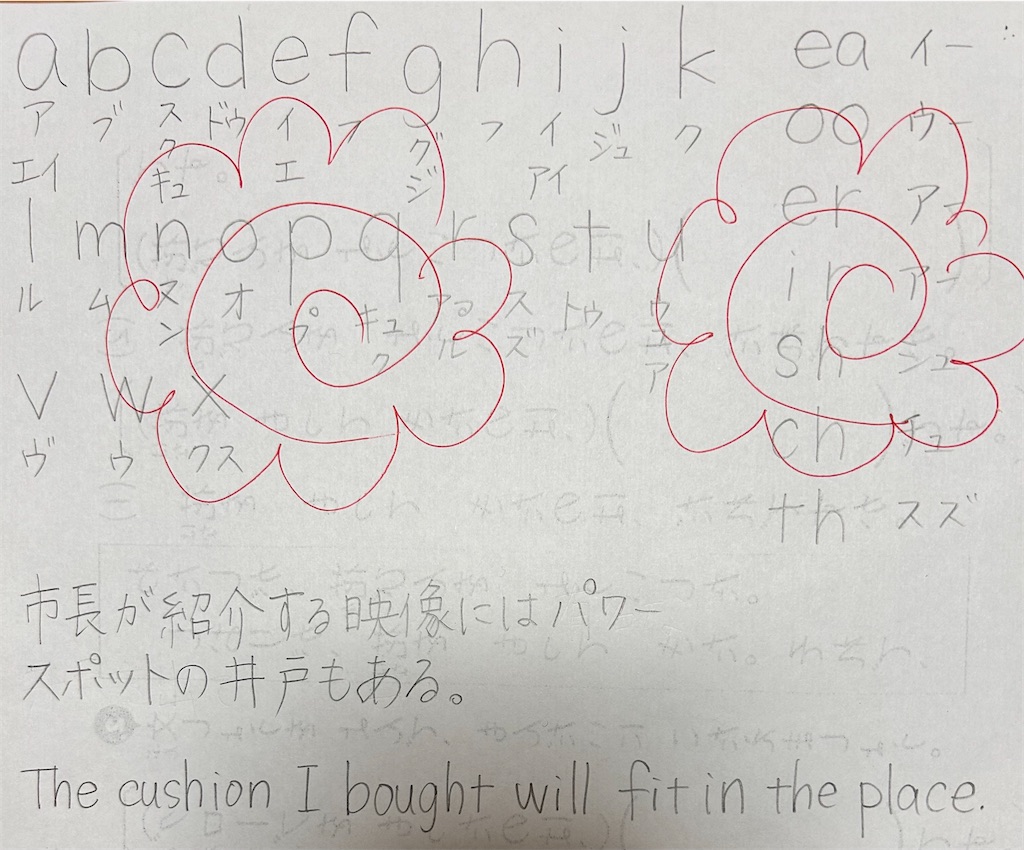 a b c d e f g h i j k ea イー
ア ブ ス ドゥ イ フ グ フ イ ジュ ク oo ウー
エイ ク キュ エ ジ アイ er アー
l m n o p q r s t u ir アー
ル ム ヌ オ プ キュ ア ス トゥ ウ
ン ク ル ズ ユ ア sh シュ
v w x ch チュ
ヴ ウ クス
th スズ
市長が紹介する映像にはパワー
スポットの井戸もある。
The cushion I bought will fit in the place.